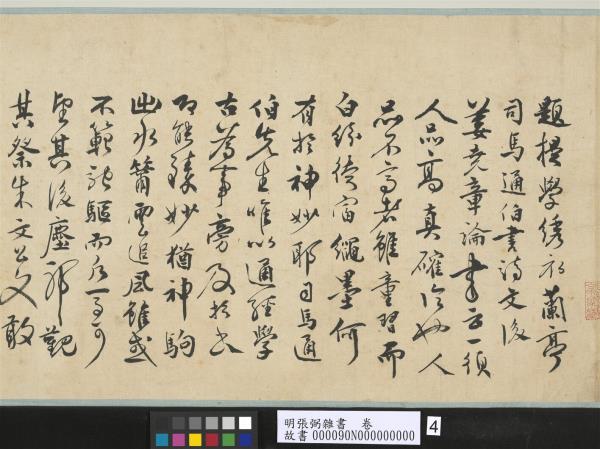 題提學繡衣蘭亭
司馬通伯書詩文後
姜堯章論書云一須
人品高真確論也人
品不高者雖童習而
白紛繩墨何
有於神妙耶司馬通
伯先生唯以通經學
古為事旁及於書
即能臻妙猶神駒
出水雲追風雖或
不範馳驅而可
望其後塵耶觀
其祭朱文公文敢
明張弼雜書　卷
故書 000090N000000000
4